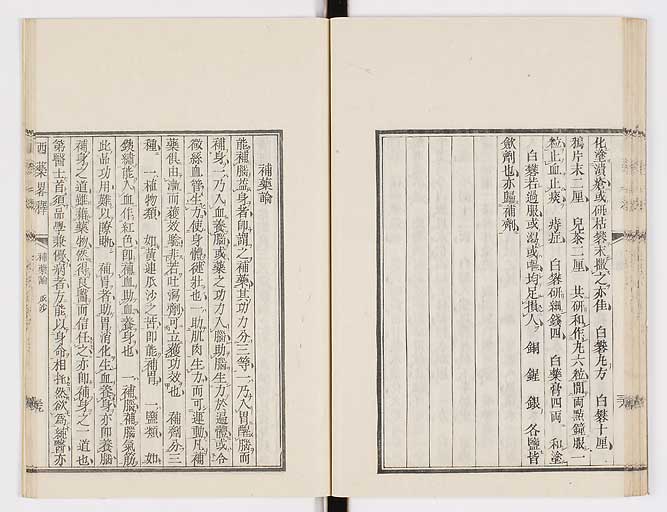 化塗潰瘡或研枯礬末撒之亦佳　白礬丸方　白礬十厘
鴉片末二厘　兒茶二厘　共研和作九六粒間両點鐘服一
粒止血止痰　痔症　白礬研　錢四　白藥膏四両　和塗
白礬若過服或瀉或嘔均足損人　銅　鋅　銀　各鹽皆
斂劑也亦歸補劑
補藥論
能補腦益身者即謂之補藥其功力分三等一乃入胃醒腦而
補身一乃入血養腦或藥之功力入腦助腦生力於遍體或令
微絲血管生力使身體健壯也一助肌肉生力而可運動凡補
藥俱由漸而獲效驗非若吐瀉劑可立獲功效也　補劑分三
種　一植物類　如黃連瓜沙之苦即能補胃　一鹽類　如
鐵鏽能入血作紅色即補血助血養身也　一補腦補腦氣筋
此品功用難以瞭晰　補胃者助胃消化生血養身亦即養腦
補身之道雖藉藥物然得良醫而信任之亦即補身之一道也
第醫士首須品學兼優病者方能以身命相托然欲為純醫亦
西藥畧釋
補藥論 瓜沙